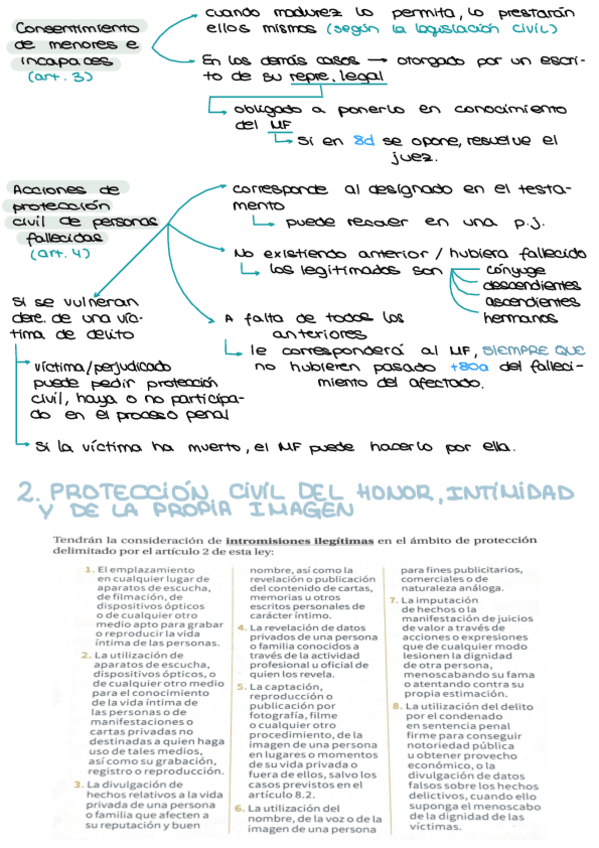 Consentimiento
de menores e
incapaces
(art. 3)
cuando madurez lo permita, lo prestarán
ellos mismos (según la legislación civil)
En los demás casos → otorgado por un escri-
to de su repre. legal
obligado a ponerlo en conocimiento
del MF
Si en 8d se opone, resuelve el
juez.
Acciones de
protección
civil de personas
fallecidas
(art. 4)
corresponde al designado en el testa-
mento
puede recaer en una p.j.
No existiendo anterior / hubiera fallecido
los legitimados son
cónyuge
descendientes
ascendientes
hermanos
A falta de todos los
anteriores
le corresponderá al MF, SIEMPRE QUE
no hubieren pasado +80a del falleci-
miento del afectado.
Si se vulneran
dere. de una víc-
tima de delito
víctima/perjudicado
puede pedir protección
civil, haya o no participa-
do en el proceso penal
Si la víctima ha muerto, el MF puede hacerlo por ella.
2. PROTECCIÓN CIVIL DEL HONOR, INTIMIDAD
Y DE LA PROPIA IMAGEN
Tendrán la consideración de intromisiones ilegítimas en el ámbito de protección
delimitado por el artículo 2 de esta ley:
1. El emplazamiento
en cualquier lugar de
aparatos de escucha,
de filmación, de
dispositivos ópticos
o de cualquier otro
medio apto para grabar
o reproducir la vida
íntima de las personas.
2. La utilización de
aparatos de escucha,
dispositivos ópticos, o
de cualquier otro medio
para el conocimiento
de la vida íntima de
las personas o de
manifestaciones o
cartas privadas no
destinadas a quien haga
uso de tales medios,
así como su grabación,
registro o reproducción.
3. La divulgación de
hechos relativos a la vida
privada de una persona
o familia que afecten a
su reputación y buen
nombre, así como la
revelación o publicación
del contenido de cartas,
memorias u otros
escritos personales de
carácter íntimo.
4. La revelación de datos
privados de una persona
o familia conocidos a
través de la actividad
profesional u oficial de
quien los revela.
5. La captación,
reproducción o
publicación por
fotografía, filme
o cualquier otro
procedimiento, de la
imagen de una persona
en lugares o momentos
de su vida privada o
fuera de ellos, salvo los
casos previstos en el
artículo 8.2.
6. La utilización del
nombre, de la voz o de la
imagen de una persona
para fines publicitarios,
comerciales o de
naturaleza análoga.
7. La imputación
de hechos o la
manifestación de juicios
de valor a través de
acciones o expresiones
que de cualquier modo
lesionen la dignidad
de otra persona,
menoscabando su fama
o atentando contra su
propia estimación.
8. La utilización del delito
por el condenado
en sentencia penal
firme para conseguir
notoriedad pública
u obtener provecho
económico, o la
divulgación de datos
falsos sobre los hechos
delictivos, cuando ello
suponga el menoscabo
de la dignidad de las
víctimas.